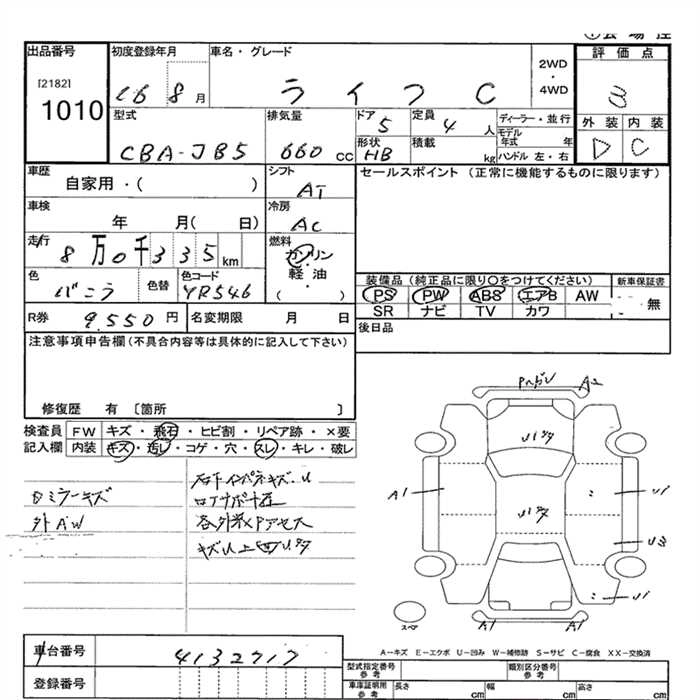 出品番号
[2182]
1010
初度登録年月
16 8 月
車名・グレード
ライフ C
2WD
・
4WD
評価点
3
外装 内装
D C
型式
CBA-JB5
排気量
660 cc
ドア
5
定員
4 人
形状
HB
積載
kg
ディーラー・並行
モデル年式 年
ハンドル 左・右
車歴
自家用・( )
シフト
AT
車検
年 月( 日)
冷房
AC
走行
8万0千335 km
燃料
ガソリン
軽・油
( )
色
バニラ
色替
色コード
YR546
R券
9,550 円
名変期限 月 日
セールスポイント (正常に機能するものに限ります)
装備品 (純正品に限り○をつけてください)
新車保証書
PS PW ABS エアB AW
無
SR ナビ TV カワ
後日品
注意事項申告欄(不具合内容等は具体的に記入して下さい)
修復歴 有 〔箇所 〕
検査員
記入欄
FW キズ・飛石・ヒビ割・リペア跡・×要
内装 キズ・汚レ・コゲ・穴・スレ・キレ・破レ
ロミラーキズ
外AW
A2
A1
U1
U3
U1
A1
A1
A-キズ E-エクボ U-凹み W-補修跡 S-サビ C-腐食 XX-交換済
車台番号
4132717
登録番号
型式指定番号
参考
類別区分番号
参考
車庫証明用
参考
長さ cm
幅 cm
高さ cm